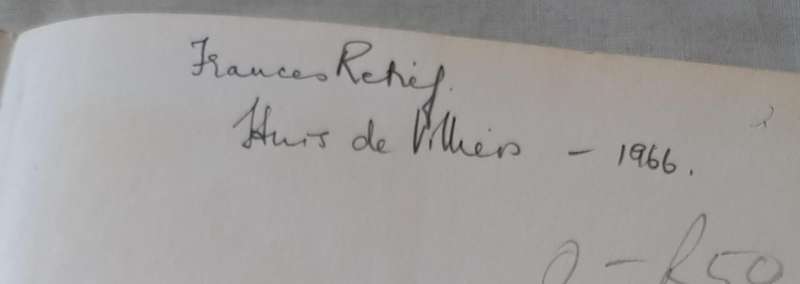 Frances Retief.
Huis de Villiers - 1966.
R50